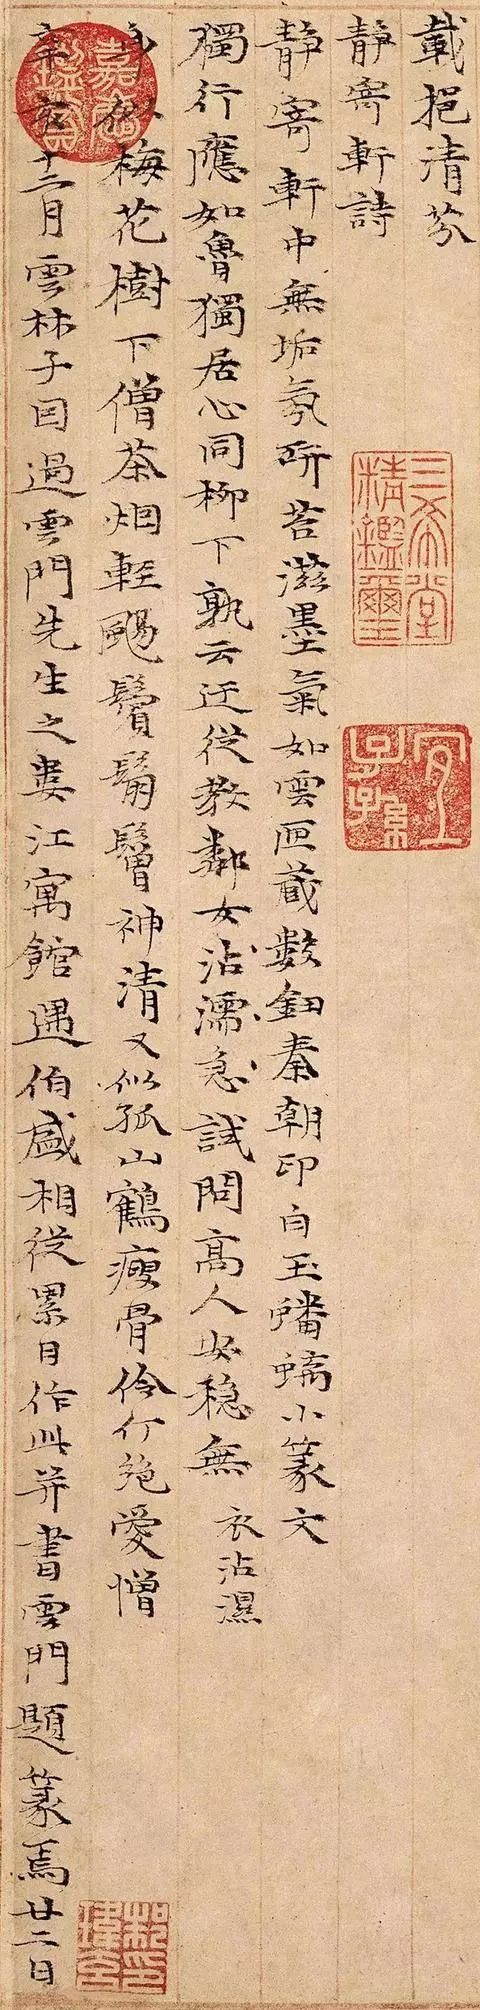 載挹清芬
靜寄軒詩
靜寄軒中無垢氛研苔滋墨氣如雲匣藏數鈕秦朝印白玉蟠螭小篆文
獨行應如魯獨居心同柳下孰云迂從教鄰女沾濡急試問高人安穩無
衣沾濕
似梅花樹下僧茶烟輕颺鬢鬅鬙神清又似孤山鶴瘦骨伶仃絶愛憎
辛亥十二月雲林子因過雲門先生之婁江寓館遇伯盛相從累日作此并書雲門題篆焉廿二日
三希堂精鑑璽
宜子孫
嘉慶鑑賞